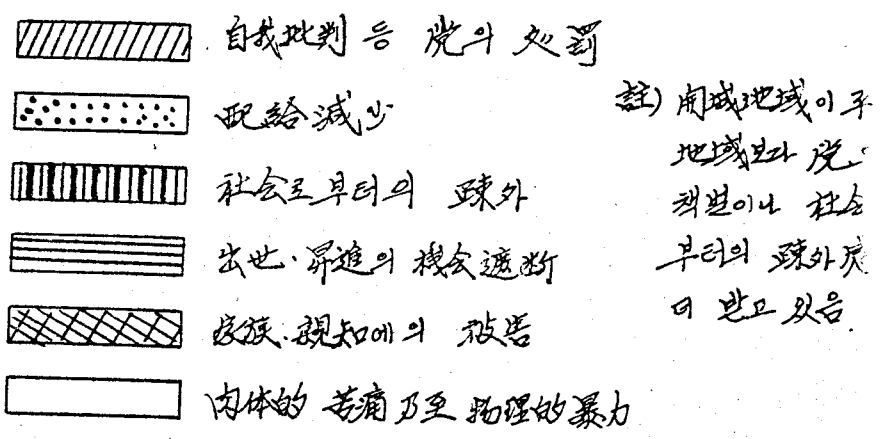 自我批判 등 党의 処罰
配給減少
社会로부터의 疎外
出世·昇進의 機会遮断
家族·親知에의 被害
肉体的 苦痛 乃至 物理的 暴力
註) 開城地域이
地域보다 党
책벌이나 社会
부터의 疎外
더 받고 있음.